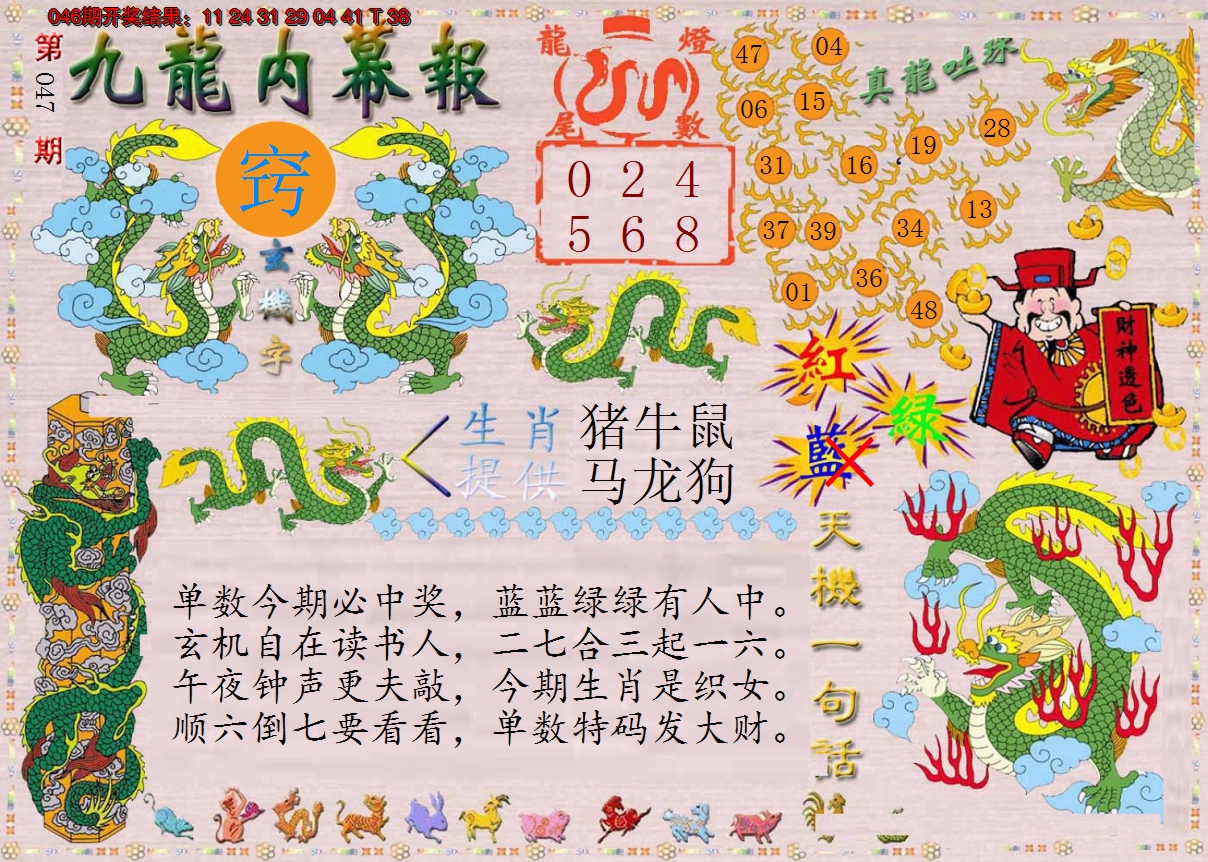 046期开奖结果：11 24 31 29 04 41 T 38
第047期
九龍内幕報
窍
玄機字
龍燈
尾數
0 2 4
5 6 8
真龍吐珠
47 04
06 15
31 16 19 28
37 39 34 13
01 36 48
財神透色
紅
绿
藍
生肖提供
猪牛鼠
马龙狗
天機一句话
单数今期必中奖，蓝蓝绿绿有人中。
玄机自在读书人，二七合三起一六。
午夜钟声更夫敲，今期生肖是织女。
顺六倒七要看看，单数特码发大财。